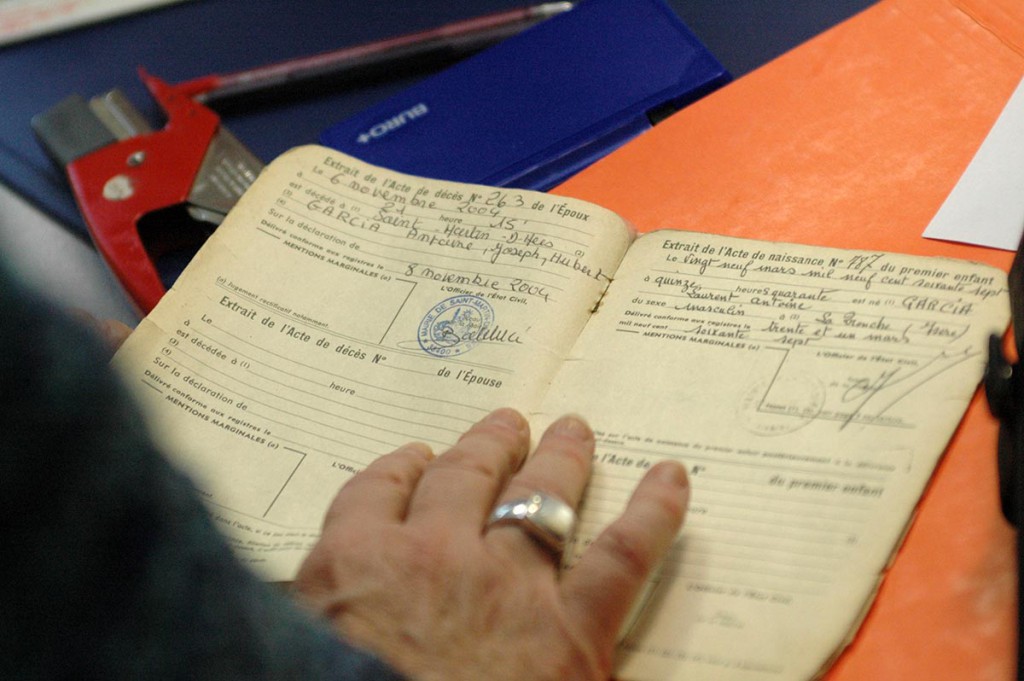 BURO+
Extrait de l'Acte de décès N° 263 de l'Époux
Le 6 novembre 2004
à 21 heure 15
est décédé à (1) Saint Martin-D'Heres
GARCIA Antoine, Joseph, Hubert
Sur la déclaration de
Délivré conforme aux registres le 8 novembre 2004
MENTIONS MARGINALES (a)
L'Officier de l'État Civil,
MAIRIE DE SAINT-MARTIN
(a) Jugement rectifiant notamment.
Extrait de l'Acte de décès N° de l'Épouse
Le
à heure
est décédée à (1)
Sur la déclaration de
Délivré conforme aux registres le
MENTIONS MARGINALES (a)
Extrait de l'Acte de naissance N° 787 du premier enfant
Le vingt neuf mars mil neuf cent soixante sept
à quinze heures quarante est né (1) GARCIA
Laurent Antoine
du sexe masculin à La Tronche Isère
Délivré conforme aux registres le trente et un mars
mil neuf cent soixante sept
MENTIONS MARGINALES (a)
L'Officier de l'État Civil,
l'Acte de naissance N°
du premier enfant